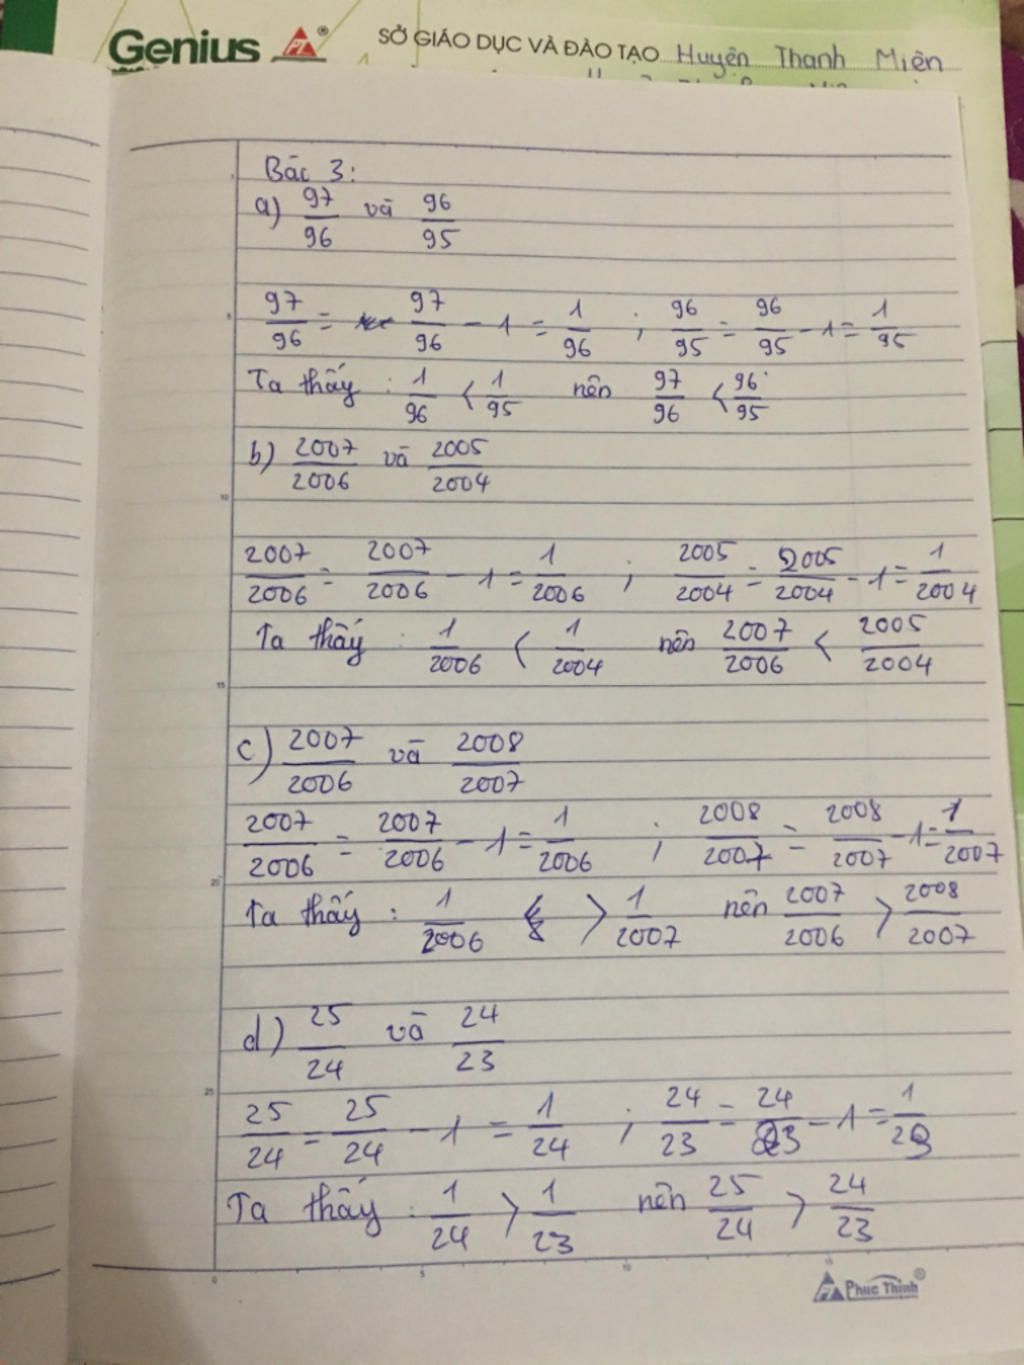 Genius PT® SỞ GIÁO DỤC VÀ ĐÀO TẠO Huyện Thanh Miện
Bác 3:
a) 97/96 và 96/95
97/96 = 97/96 - 1 = 1/96 ; 96/95 = 96/95 - 1 = 1/95
Ta thấy : 1/96 < 1/95 nên 97/96 < 96/95
b) 2007/2006 và 2005/2004
2007/2006 = 2007/2006 - 1 = 1/2006 ; 2005/2004 = 2005/2004 - 1 = 1/2004
Ta thấy : 1/2006 < 1/2004 nên 2007/2006 < 2005/2004
c) 2007/2006 và 2008/2007
2007/2006 = 2007/2006 - 1 = 1/2006 ; 2008/2007 = 2008/2007 - 1 = 1/2007
Ta thấy : 1/2006 > 1/2007 nên 2007/2006 > 2008/2007
d) 25/24 và 24/23
25/24 = 25/24 - 1 = 1/24 ; 24/23 = 24/23 - 1 = 1/23
Ta thấy : 1/24 > 1/23 nên 25/24 > 24/23
Phuc Thinh®